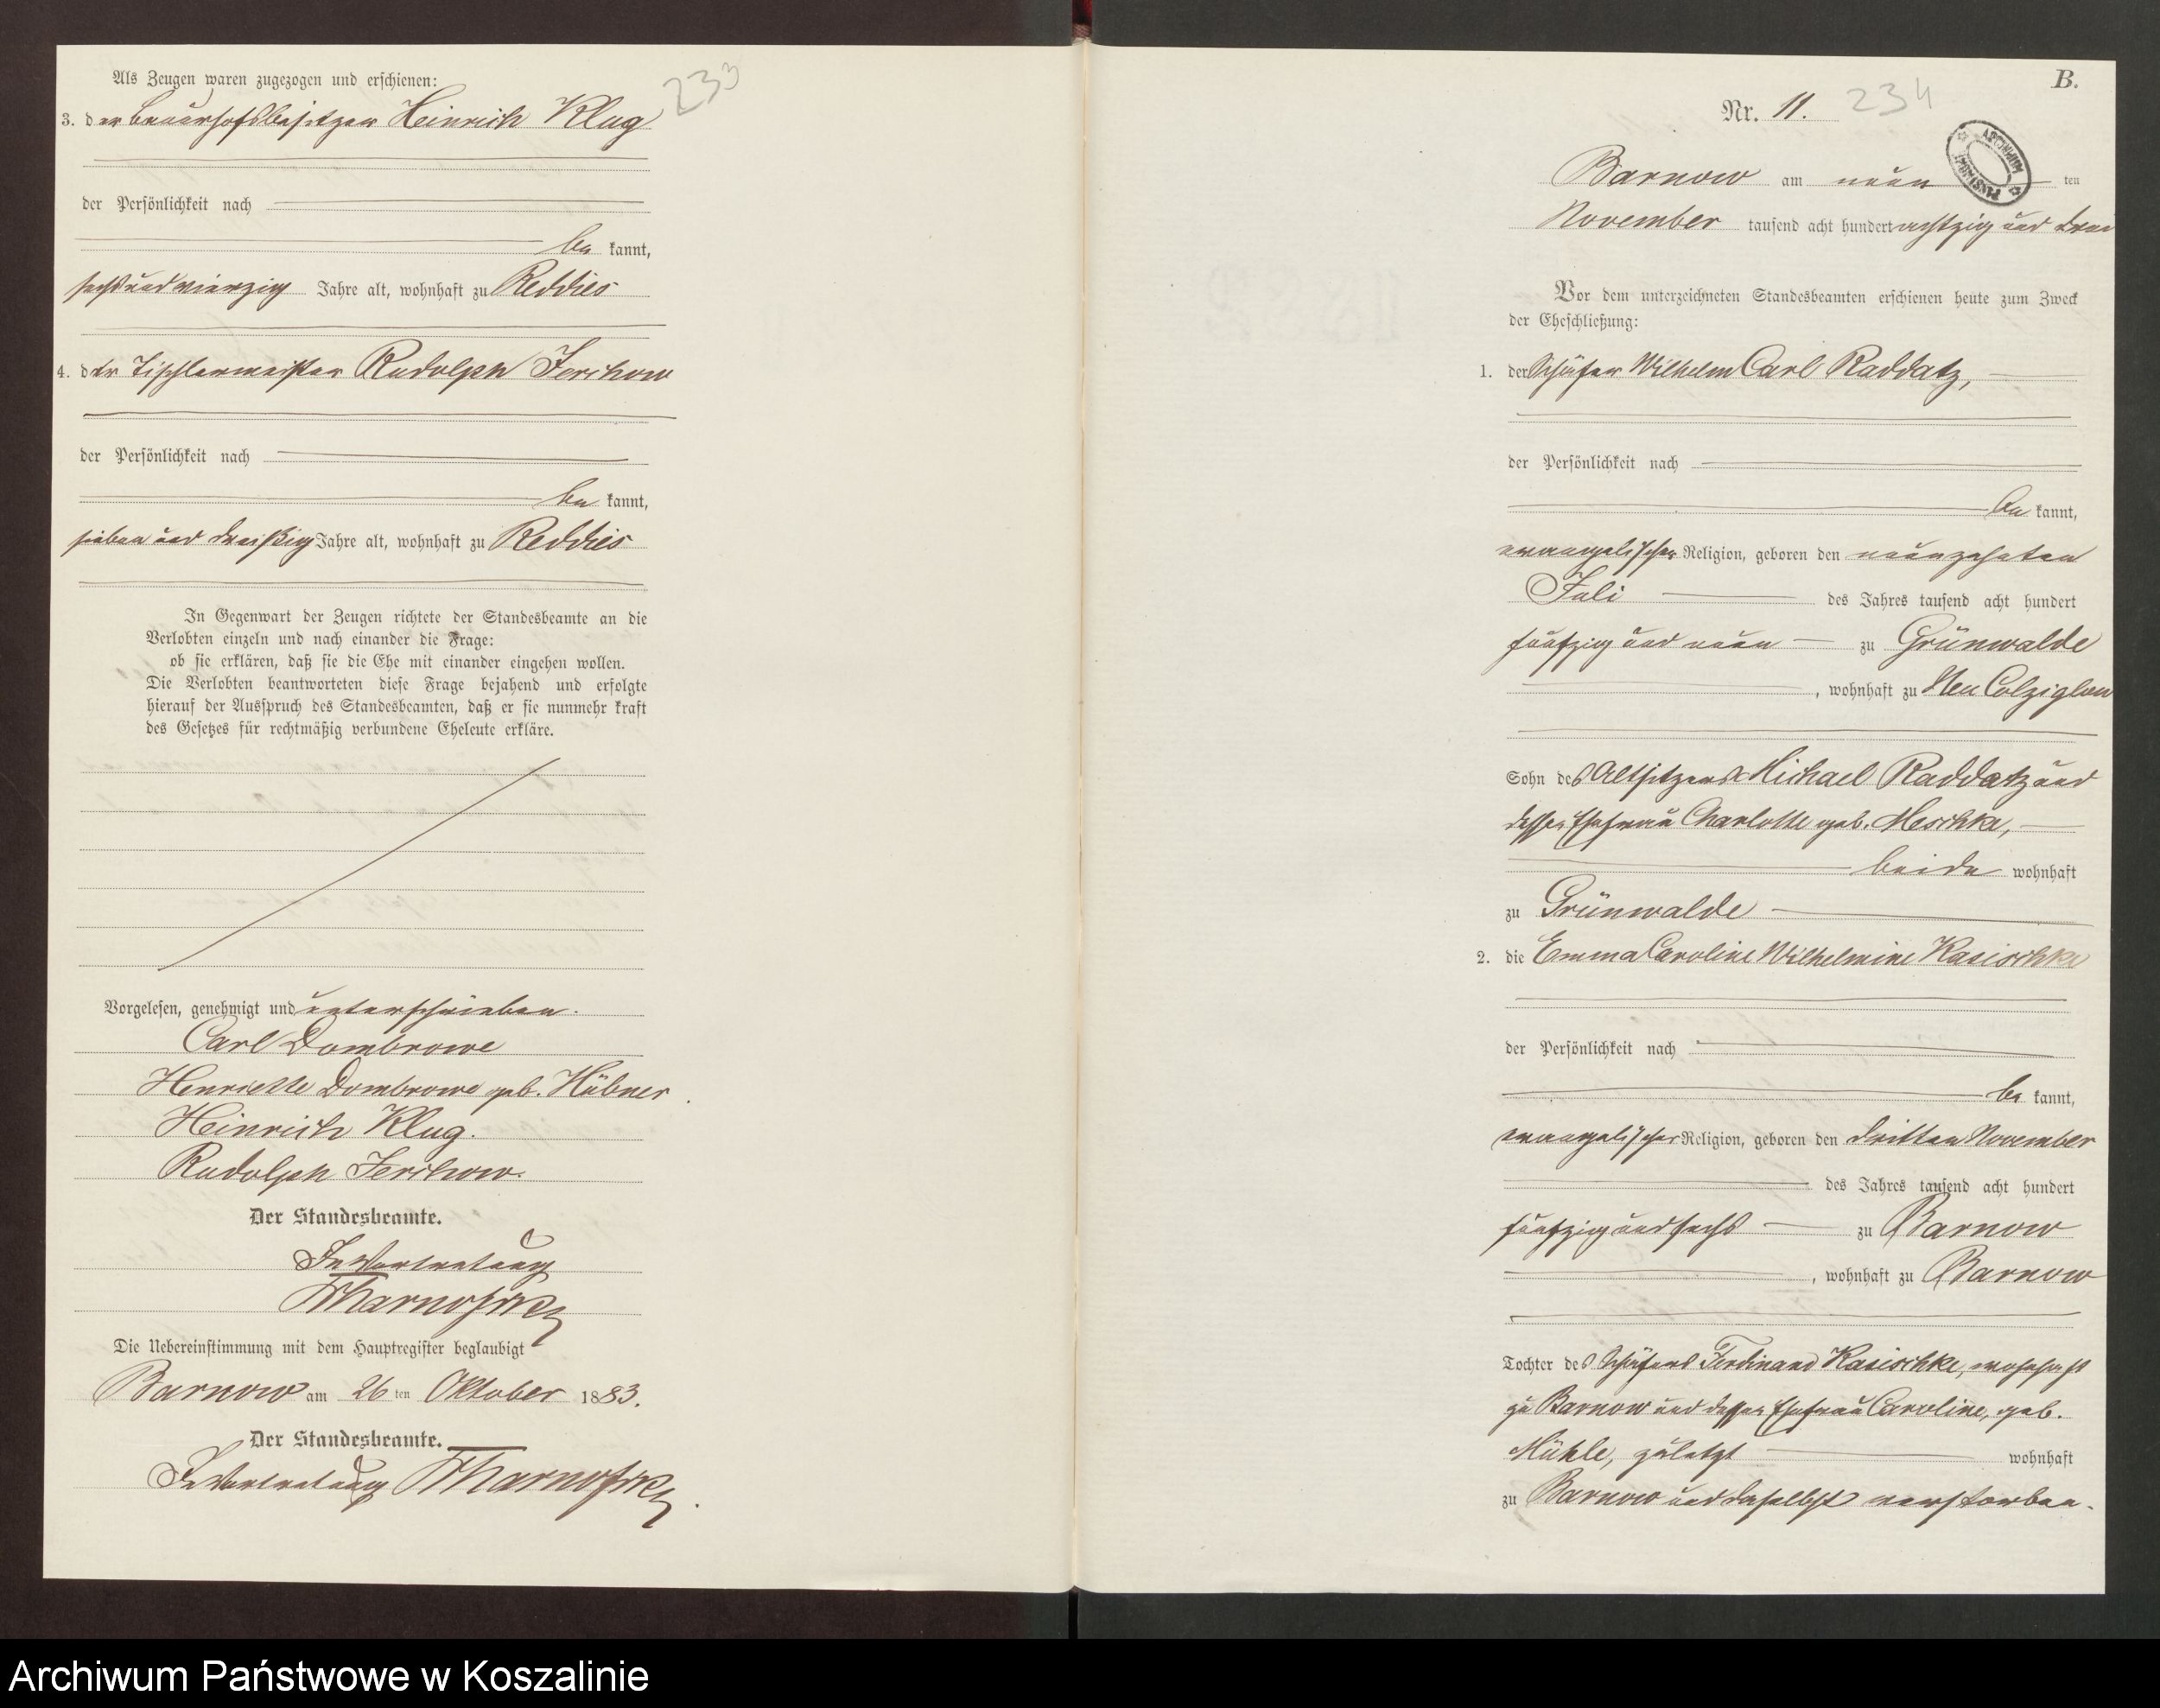 Als Zeugen waren zugezogen und erschienen:
233
3. der Bauerhofsbesitzer Heinrich Klug
der Persönlichkeit nach
be kannt,
sechsundvierzig Jahre alt, wohnhaft zu Reddies
4. der Tischlermeister Rudolph Jerchow
der Persönlichkeit nach
be kannt,
sieben und dreißig Jahre alt, wohnhaft zu Reddies
In Gegenwart der Zeugen richtete der Standesbeamte an die
Verlobten einzeln und nach einander die Frage:
ob sie erklären, daß sie die Ehe mit einander eingehen wollen.
Die Verlobten beantworteten diese Frage bejahend und erfolgte
hierauf der Ausspruch des Standesbeamten, daß er sie nunmehr kraft
des Gesetzes für rechtmäßig verbundene Eheleute erkläre.
Vorgelesen, genehmigt und unterschrieben.
Carl Dombrowe
Henriette Dombrowe geb. Hübner.
Heinrich Klug.
Rudolph Jerchow.
Der Standesbeamte.
In Vertretung
Die Uebereinstimmung mit dem Hauptregister beglaubigt
Barnow am 26 ten Oktober 1883.
Der Standesbeamte.
In Vertretung
B.
Nr. 11. 234
ARCHIWUM PAŃSTWOWE
Barnow am neun ten
November tausend acht hundert achtzig und drei
Vor dem unterzeichneten Standesbeamten erschienen heute zum Zweck
der Eheschließung:
1. der Schäfer Wilhelm Carl Raddatz,
der Persönlichkeit nach
be kannt,
evangelischer Religion, geboren den neunzehnten
Juli des Jahres tausend acht hundert
fünfzig und neun zu Grünwalde
, wohnhaft zu Neu Colziglow
Sohn des Altsitzers Michael Raddatz und
dessen Ehefrau Charlotte geb. Meschke,
beide wohnhaft
zu Grünwalde
2. die Emma Caroline Wilhelmine Kasischke
der Persönlichkeit nach
be kannt,
evangelischer Religion, geboren den dritten November
des Jahres tausend acht hundert
fünfzig und sechs zu Barnow
, wohnhaft zu Barnow
Tochter des Schäfers Ferdinand Kasischke, wohnhaft
zu Barnow und dessen Ehefrau Caroline, geb.
Mühle, zuletzt wohnhaft
zu Barnow und daselbst verstorben.
Archiwum Państwowe w Koszalinie